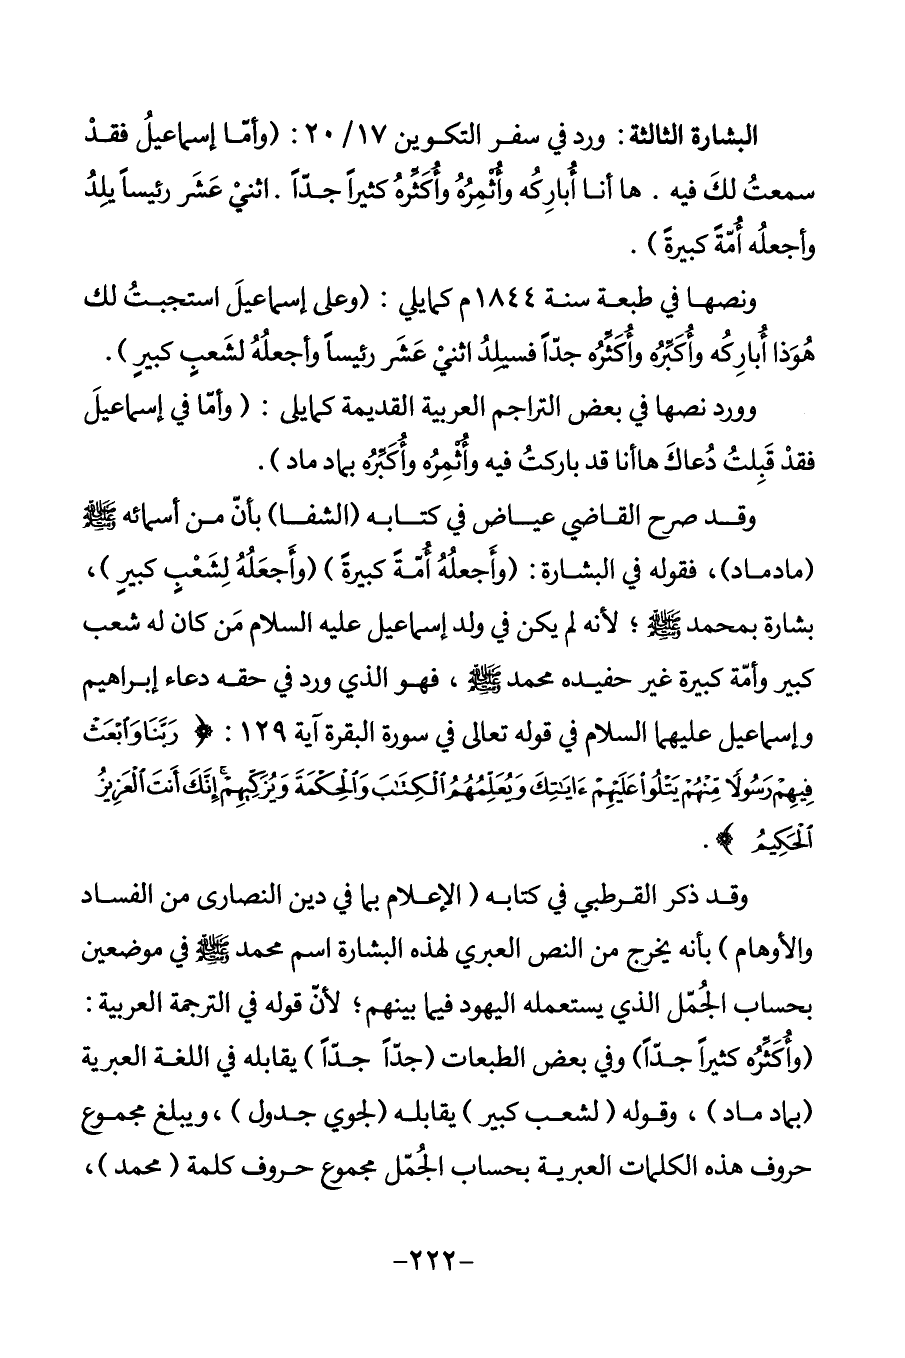 البشارة الثالثة : ورد في سفـر التكـوين ١٧/ ٢٠ : (وأمّـا إسماعيلُ فقـدْ
سمعتُ لكَ فيه . ها أنـا أُبارِكُه وأُثْمِرُهُ وأُكَثِّرهُ كثيراً جـدّاً . اثنيْ عَشَر رئيساً يلِدُ
وأجعلُه أُمّةً كبيرةً ) .
ونصهـا في طبعـة سنـة ١٨٤٤م كمايلي : (وعلى إسماعيلَ استجبـتُ لك
هُوَذا أُبارِكُه وأُكَبِّرُه وأُكَثِّرُه جدّاً فسيلِدُ اثنيْ عَشَر رئيساً وأجعلُهُ لشَعبٍ كبيرٍ ) .
وورد نصها في بعض التراجم العربية القديمة كمايلى : ( وأمّا في إسماعيلَ
فقدْ قَبِلتُ دُعاكَ هاأنا قد باركتُ فيه وأُثْمِرُه وأُكَبِّرُه بماد ماد ) .
وقـــد صرح القـاضي عيـــاض في كتـــابـه (الشفـــا) بأنّ مـن أسمائه ﷺ
(مادمـاد)، فقوله في البشـارة : (وأجعلُهُ أُمّـةً كبيرةً ) (وأَجعَلُهُ لِشَعْبٍ كبيرٍ )،
بشارة بمحمد ﷺ ؛ لأنه لم يكن في ولد إسماعيل عليه السلام مَن كان له شعب
كبير وأمّة كبيرة غير حفيـده محمد ﷺ ، فهـو الذي ورد في حقـه دعاء إبـراهيم
وإسماعيل عليهما السلام في قوله تعالى في سورة البقرة آية ١٢٩ : ﴿ رَبَّنَا وَٱبْعَثْ
فِيهِمْ رَسُولًا مِّنْهُمْ يَتْلُواْ عَلَيْهِمْ ءَايَـٰتِكَ وَيُعَلِّمُهُمُ ٱلْكِتَـٰبَ وَٱلْحِكْمَةَ وَيُزَكِّيهِمْ ۚ إِنَّكَ أَنتَ ٱلْعَزِيزُ
ٱلْحَكِيمُ ﴾ .
وقـد ذكر القـرطبي في كتابـه ( الإعـلام بما في دين النصارى من الفسـاد
والأوهام ) بأنه يخرج من النص العبري لهذه البشارة اسم محمد ﷺ في موضعين
بحساب الجُمّل الذي يستعمله اليهود فيما بينهم ؛ لأنّ قوله في الترجمة العربية :
(وأُكَثِّرُه كثيراً جـدّاً) وفي بعض الطبعات (جدّاً جـدّاً ) يقابله في اللغـة العبرية
(بماد مـاد ) ، وقـوله ( لشعـب كبير ) يقابلـه (لجوي جـدول ) ، ويبلغ مجمـوع
حروف هذه الكلمات العبريـة بحساب الجُمّل مجموع حـروف كلمة ( محمد )،
-٢٢٢-